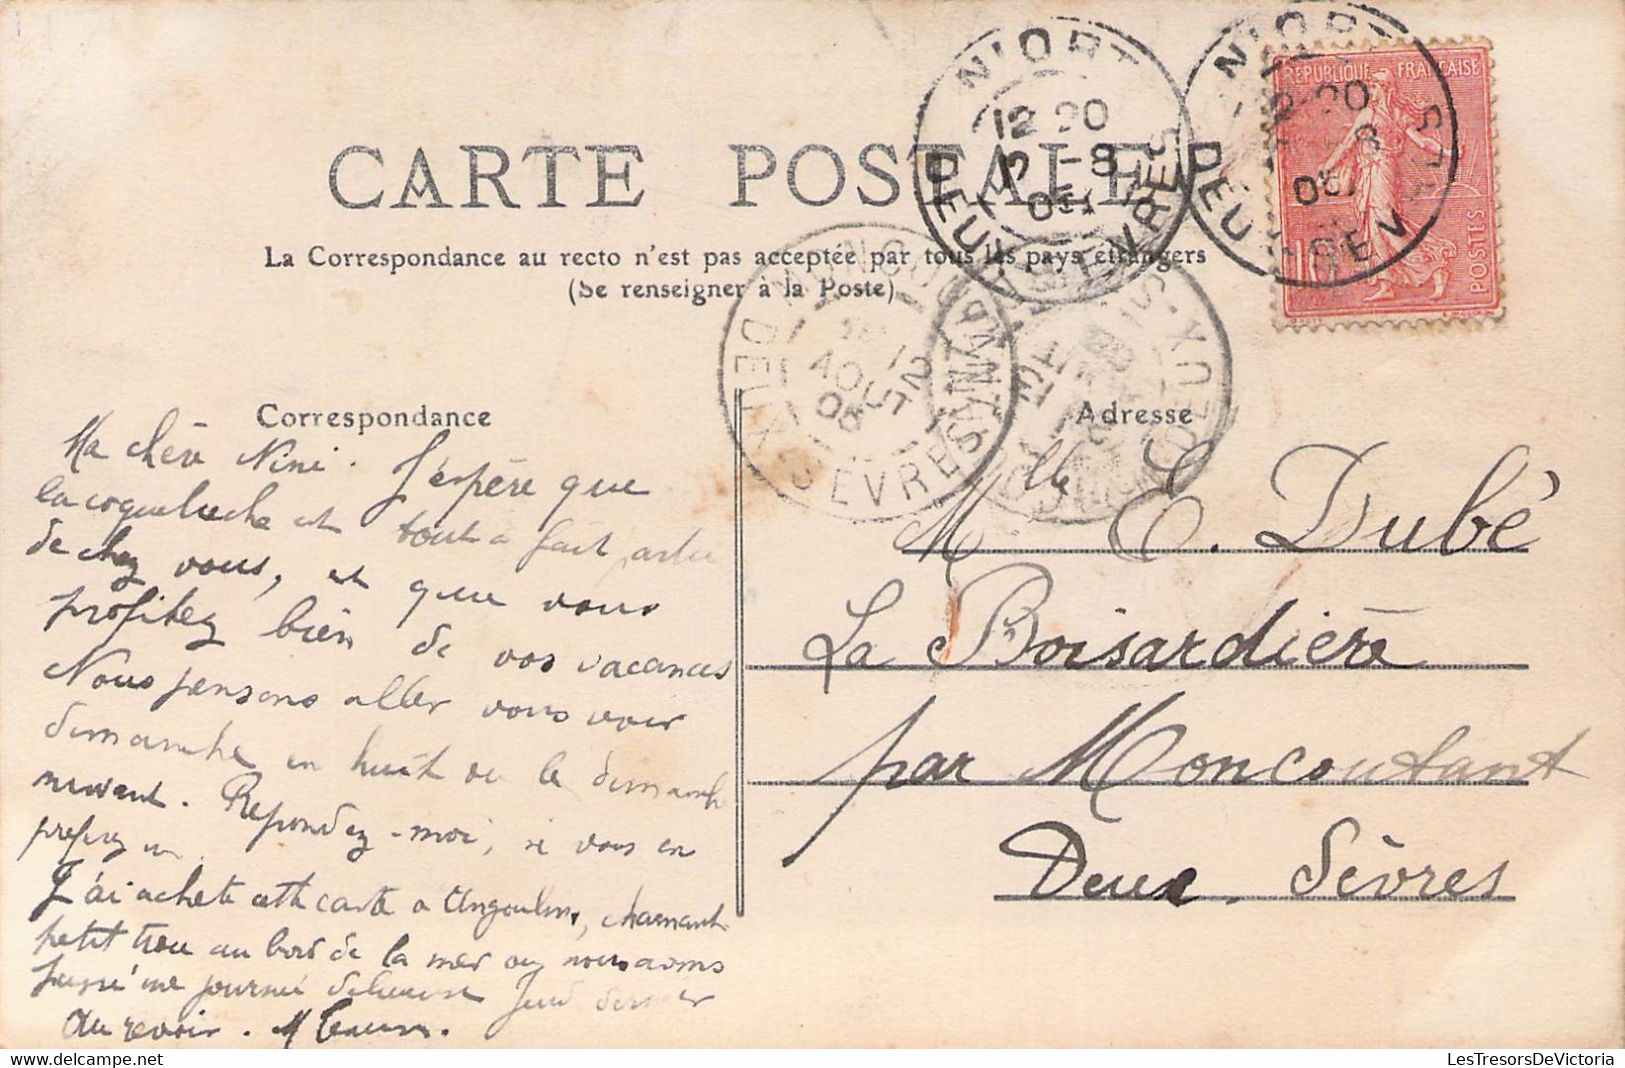 CARTE POSTALE
La Correspondance au recto n'est pas acceptée par tous les pays étrangers
(Se renseigner à la Poste)
NIORT
12 30
13 -8
05
DEUX SÈVRES
NIORT
05
DEUX SÈVRES
REPUBLIQUE FRANÇAISE
POSTES
10
MONCOUTANT
AOUT
05
DEUX SEVRES
Correspondance
Ma chère Nini. J'espère que
la coqueluche est tout a fait
de chez vous, et que vous
profitez bien de vos vacances
Nous pensons aller vous voir
dimanche en huit ou le dimanche
suivant. Répondez-moi, si vous en
J'ai acheté cette carte a Angoulins, charmant
petit trou au bord de la mer ou nous avons
passé une journée délicieuse Jeudi dernier
Au revoir. M
Adresse
Mlle E. Dubé
La Boisardière
par Moncoutant
Deux Sèvres
LesTresorsDeVictoria